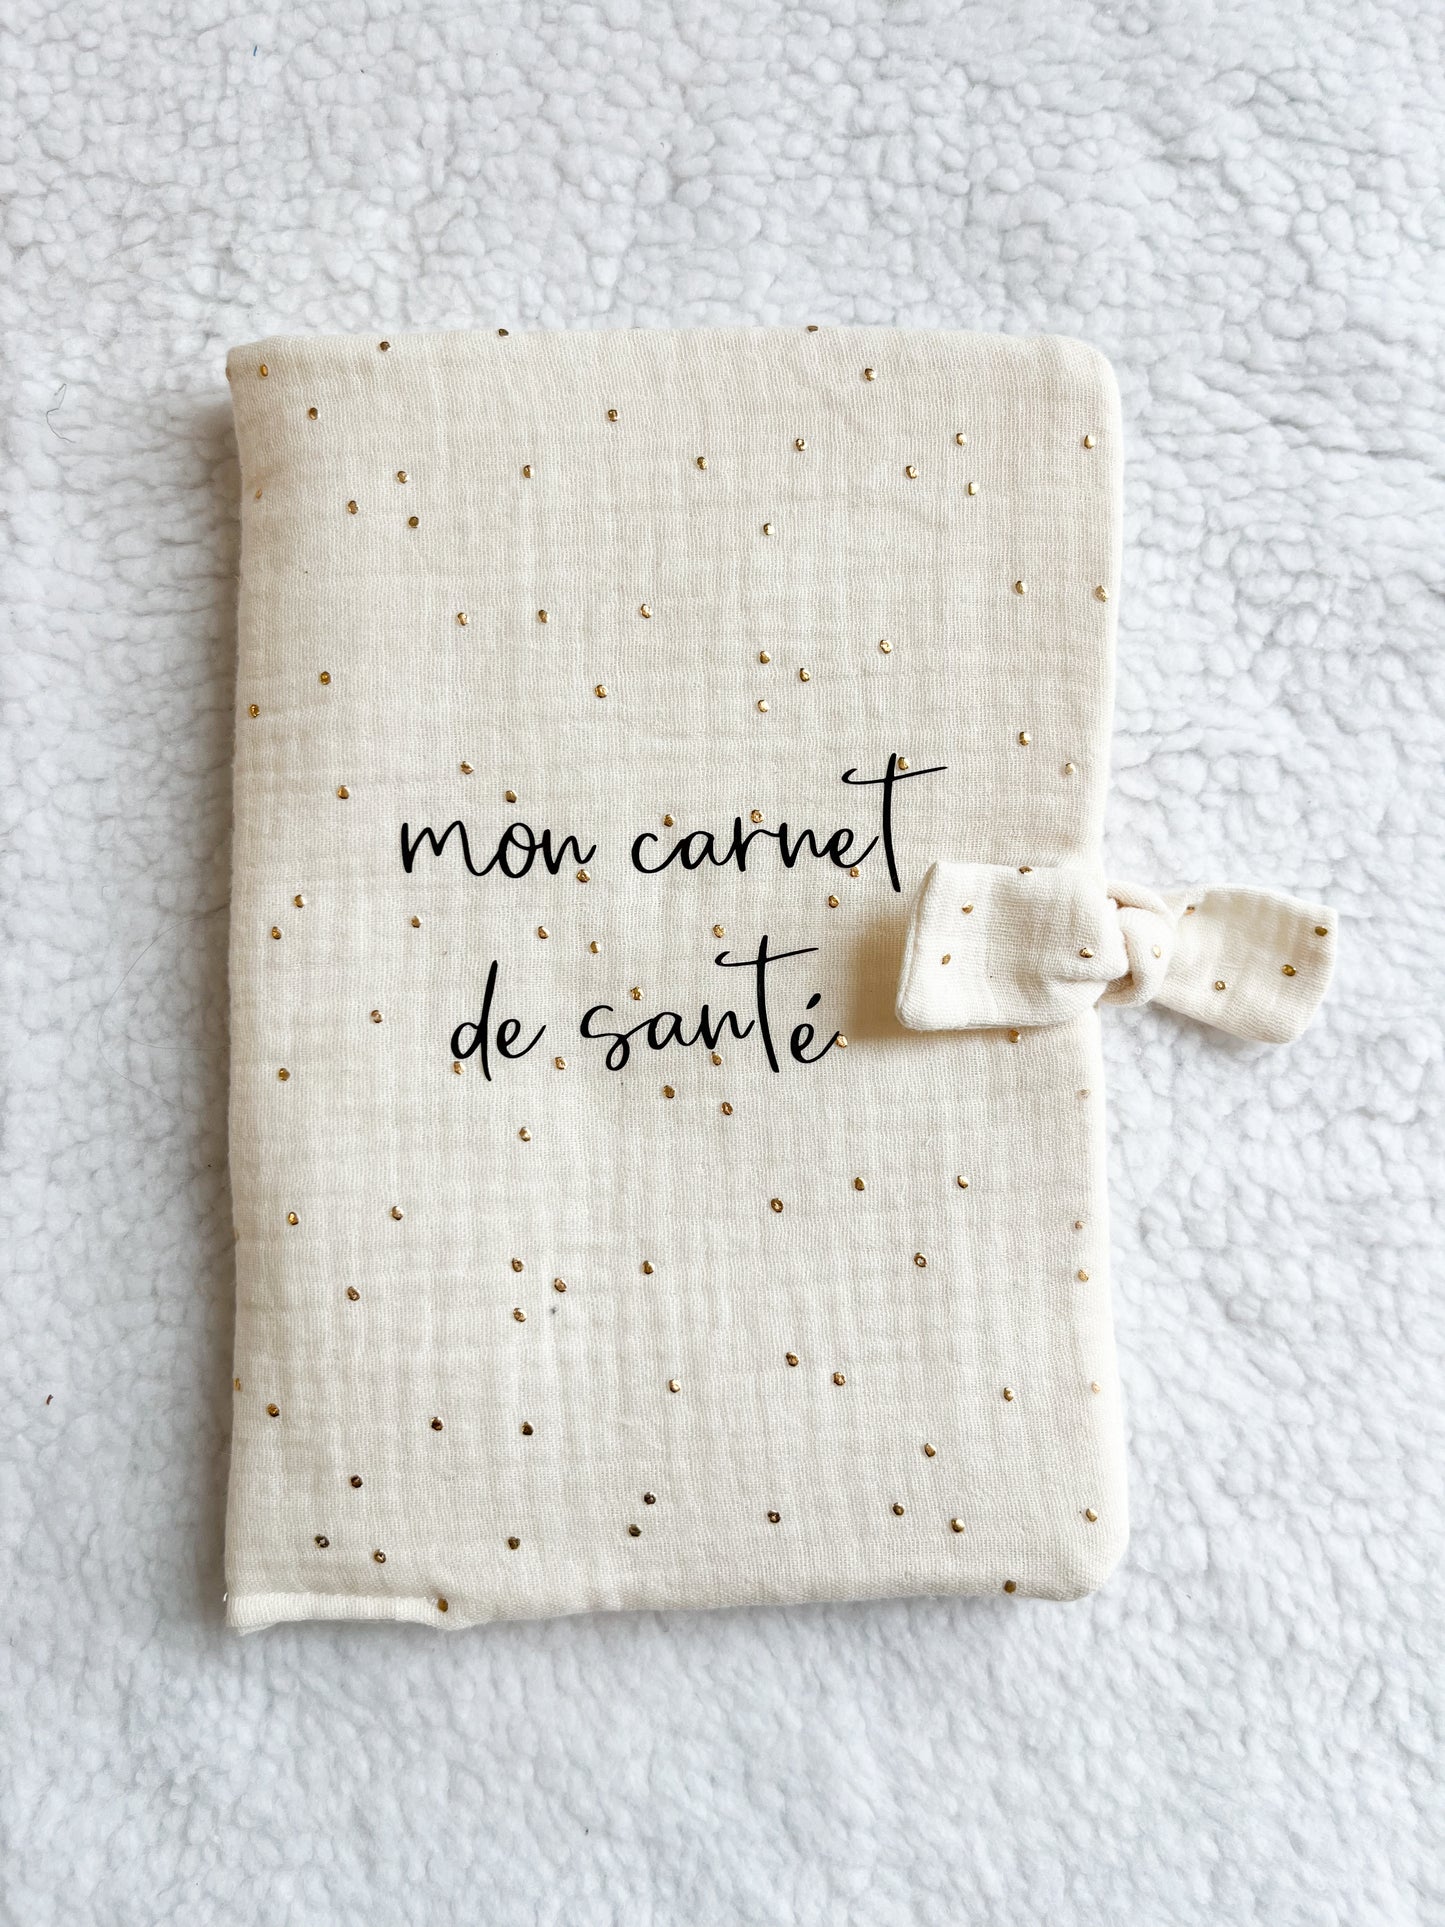 mon carnet
de santé